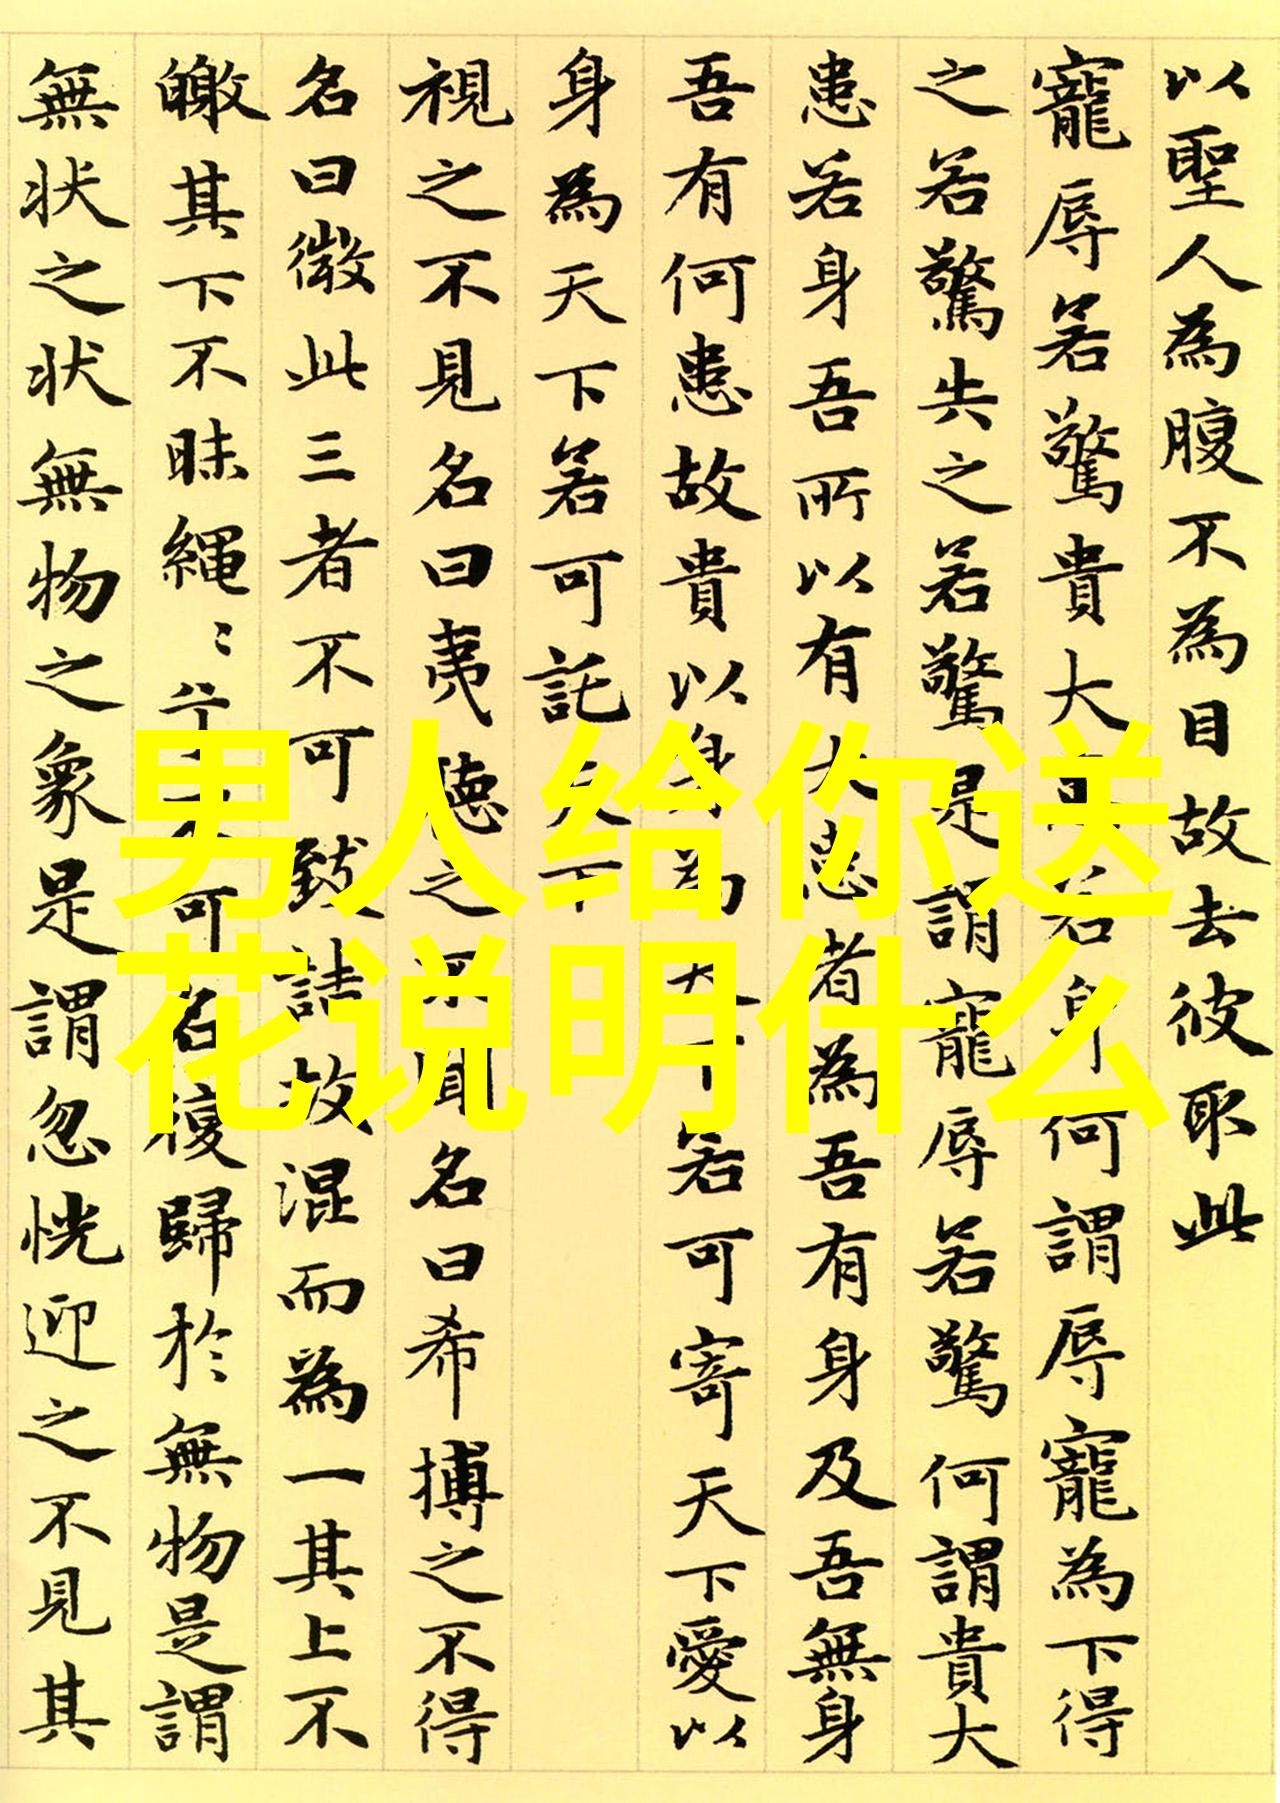 以聖人為腹不為目故去彼取此
寵辱若驚貴大患若身何謂辱寵為下得
之若驚失之若驚是謂寵辱若驚何謂貴大
患若身吾所以有大患者為吾有身及吾無身
吾有何患故貴以身為天下若可寄天下愛以
身為天下若可託天下
視之不見名曰夷聴之不聞名曰希搏之不得
名曰微此三者不可致詰故混而為一其上不
皦其下不昧繩〻兮不可名複歸於無物是謂
無状之状無物之象是謂忽恍迎之不見其
男人给你送
花说明什么